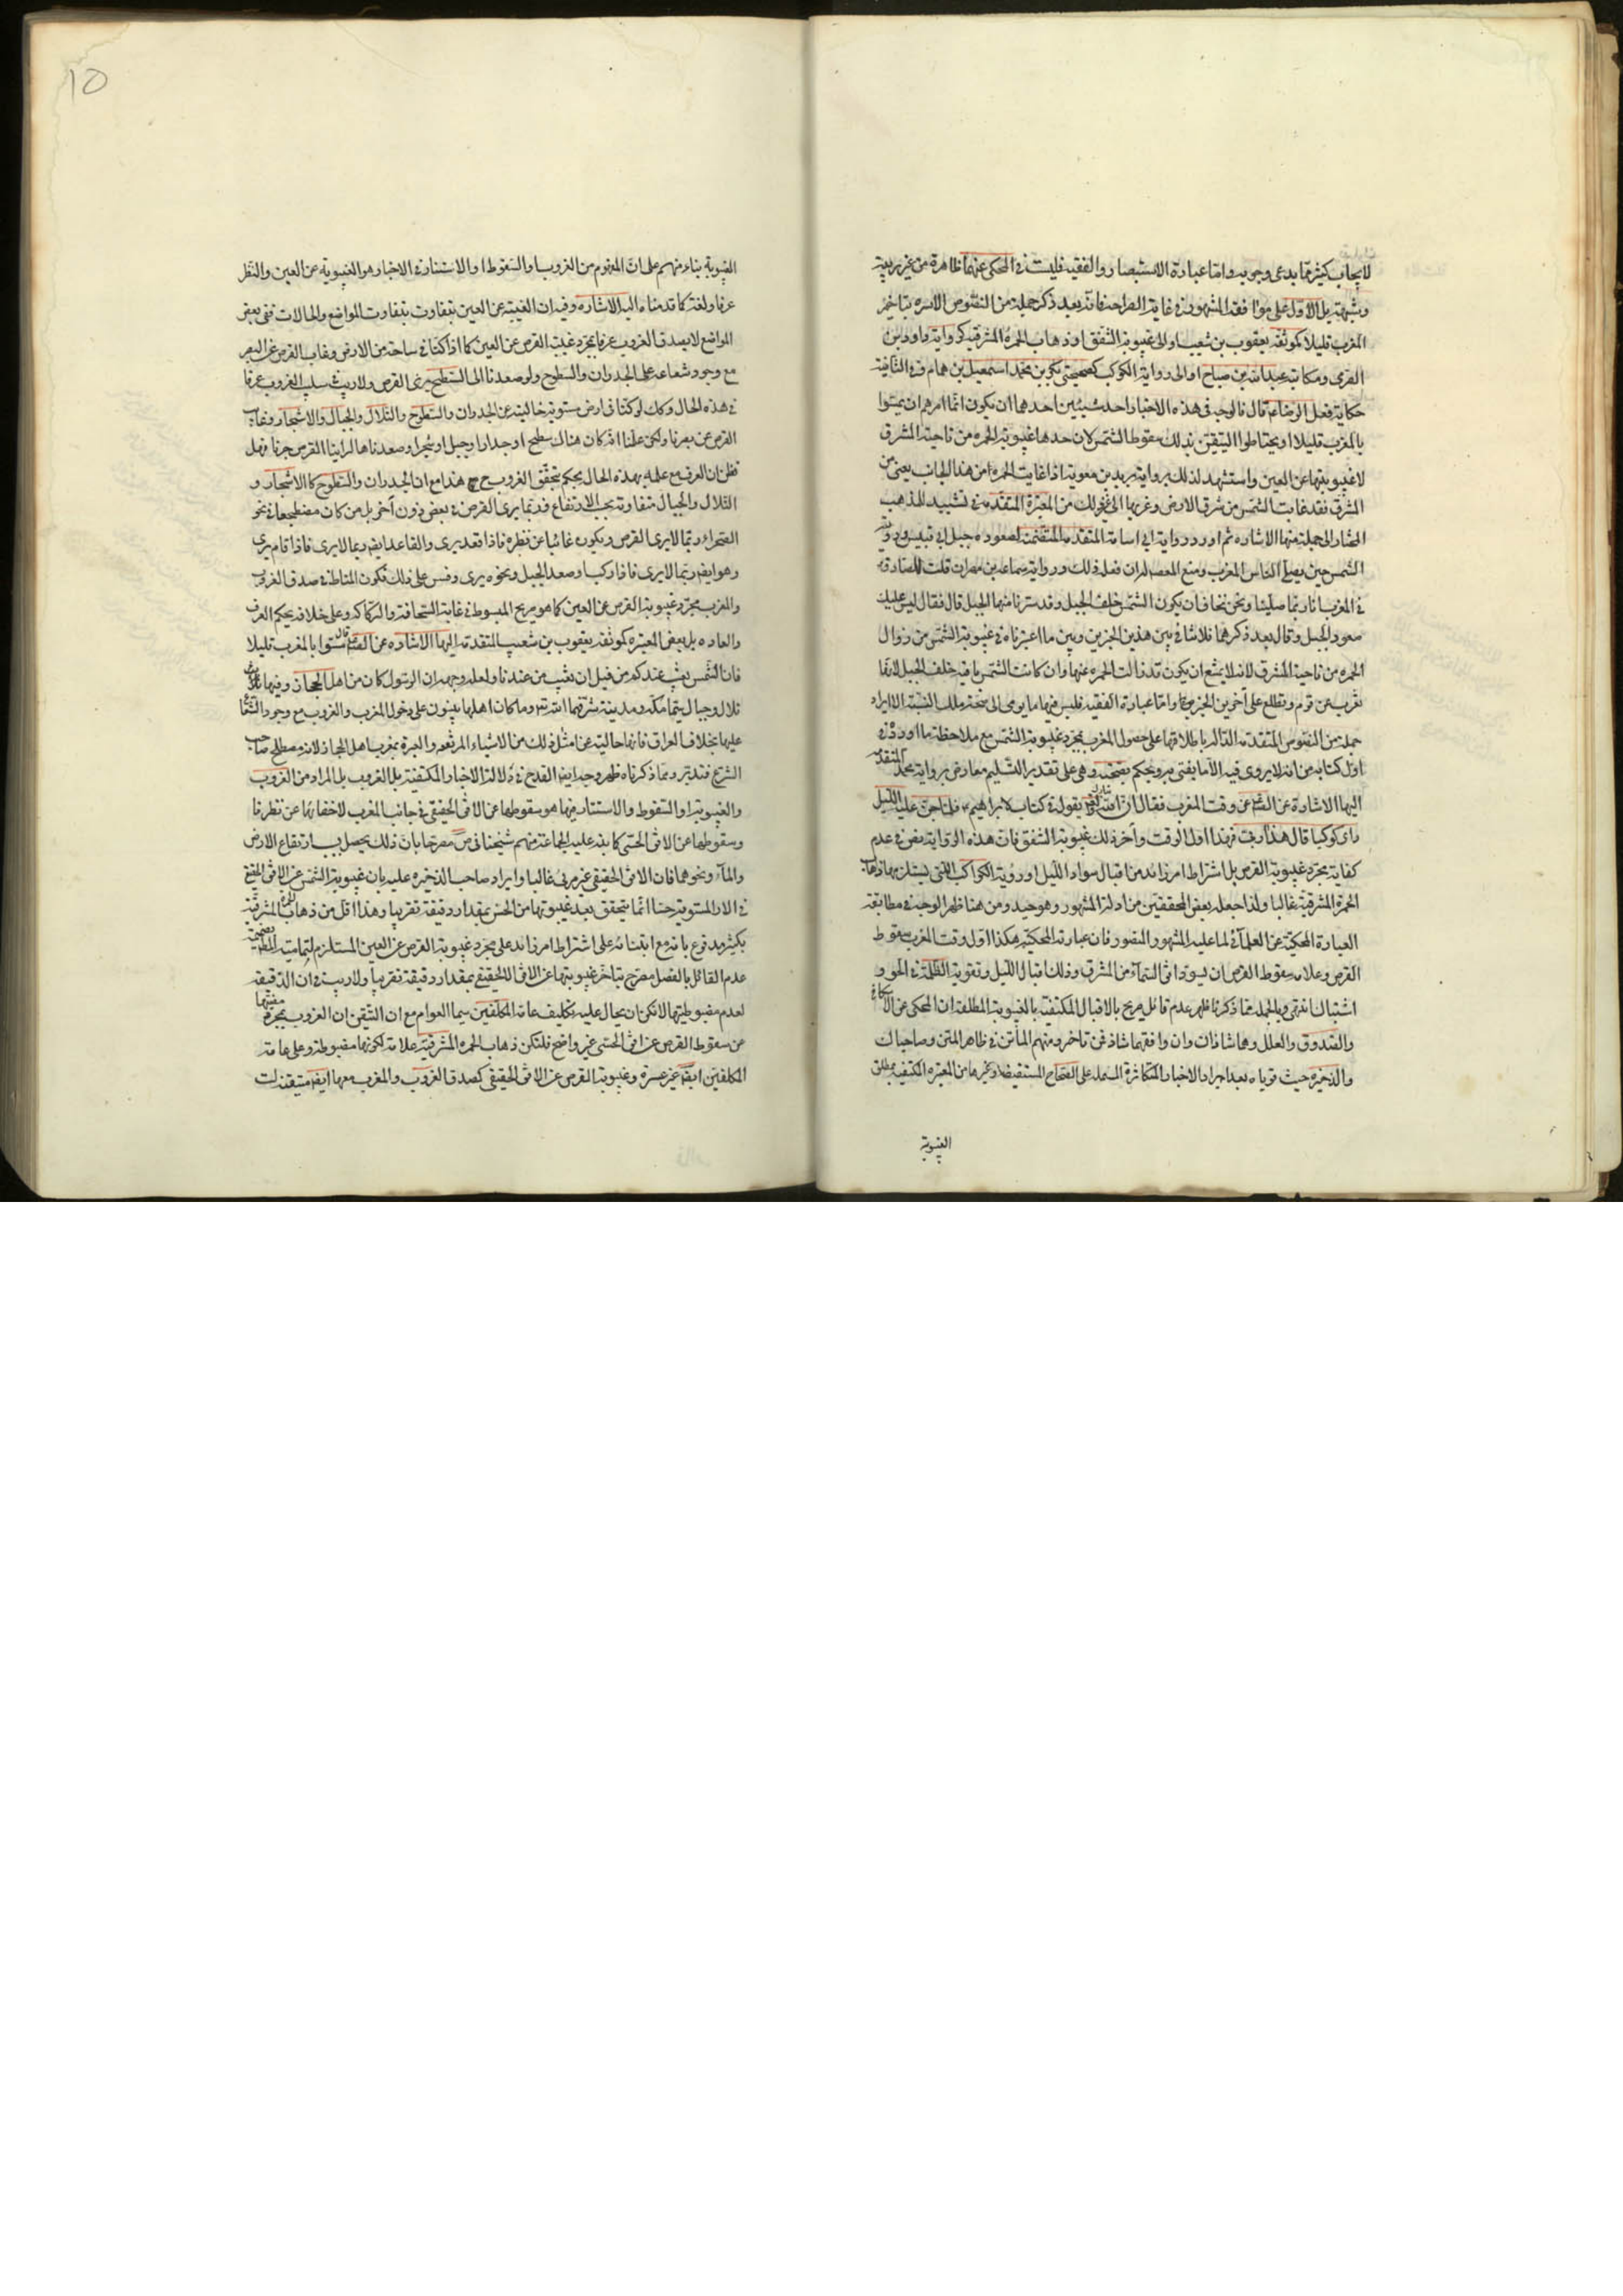 لايجاب كثير مما يدعى وجوبه واما عبارة الاستبصار والفقيه فليست في المحكي عنهما ظاهرة من غير ريبة
وشبهة بل الاول على موافقة المشهور في غاية الصراحة فانه بعد ذكر جملة من النصوص الآمرة بتاخير
المغرب قليلا كموثقة يعقوب بن شعيب او الى غيبوبة الشفق او ذهاب الحمرة المشرقية كرواية داود بن
الفرقد ومكاتبة عبد الله بن صباح او الى رواية الكوكب كصحيحتي بكر بن محمد واسمعيل بن همام وفي الثانية
حكاية فعل الرضا ع قال فالوجه في هذه الاخبار احد شيئين احدهما ان يكون انما امرهم ان يمسوا
بالمغرب قليلا او يحتاطوا ليتيقن بذلك سقوط الشمس لان حدها غيبوبة الحمرة من ناحية المشرق
لا غيبوبتها عن العين واستشهد لذلك برواية بريد بن معوية اذا غابت الحمرة من هذا الجانب يعني من
المشرق فقد غابت الشمس من شرق الارض وغربها الى غير ذلك من المعتبرة المتقدمة في تشييد المذهب
المختار الى جملة منها الاشارة ثم اورد رواية ابي اسامة المتقدمة المتضمنة لصعوده جبل ابي قبيس ورؤية
الشمس حين يصلي الناس المغرب ومنع المعصوم له ان فعله ذلك ورواية سماعة بن مهران قلت للصادق ع
في المغرب انا ربما صلينا ونحن نخاف ان يكون الشمس خلف الجبل وقد سترنا منها الجبل قال فقال ليس عليك
صعود الجبل وقال بعد ذكرهما فلا تنافي بين هذين الخبرين وبين ما اعتبرناه في غيبوبة الشمس من زوال
الحمرة من ناحية المشرق لانه لا يمتنع ان يكون قد زالت الحمرة عنها وان كانت الشمس باقية خلف الجبل لانها
تغرب عن قوم وتطلع على آخرين الخبر واما عبارة الفقيه فليس فيها ما يومي الى صحة ملك النسبة الا ايراد
جملة من النصوص المتقدمة الدالة باطلاقها على حصول المغرب بمجرد غيبوبة الشمس مع ملاحظة ما اورده في
اول كتابه من انه لا يروي فيه الا ما يفتي به ويحكم بصحته وهي على تقدير التسليم معارض برواية محمد المتقدم
اليها الاشارة عن الص عن وقت المغرب فقال ان الله تبارك وتع يقول في كتابه لابراهيم ع فلما جن عليه الليل
راى كوكبا قال هذا ربي فهذا اول الوقت وآخر ذلك غيبوبة الشفق فان هذه الرواية نص في عدم
كفاية مجرد غيبوبة القرص بل اشتراط امر زائد من اقبال سواد الليل او رؤية الكواكب اللتي يستلزمها ذهاب
الحمرة المشرقية غالبا ولذا جعله بعض المحققين من ادلة المشهور وهو جيد ومن هنا ظهر الوجه في مطابقة
العبارة المحكية عن العلماني لما عليه المشهور المنصور فان عبارته المحكية هكذا اول وقت المغرب سقوط
القرص وعلامة سقوط القرص ان يسود افق السماء من المشرق وذلك اقبال الليل وتقوية الظلمة في الجو و
اشتباك انتهى وبالجملة مما ذكرنا ظهر عدم قائل صريح بالاقبال المكتفية بالغيبوبة المطلقة ان المحكي عن الاسكافي
والصدوق والعلل وهما شاذان وان وافقهما شاذ ممن تاخر ومنهم الماتن في ظاهر المتن وصاحبا ك
والذخيرة حيث قوياه بعد ايراد الاخبار المتكاثرة المشتملة على الصحاح المستفيضة وغيرها من المعتبرة المكتفية بمطلق
الغيبوبة
10
الغيبوبة بناء منهم على ان المفهوم من الغروب او السقوط او الاستتار في الاخبار هو الغيبوبة عن العين والنظر
عرفا ولغة كما قدمناه اليه الاشارة وفيه ان الغيبة عن العين يتفاوت بتفاوت المواضع والحالات ففي بعض
المواضع لا يصدق الغروب عرفا بمجرد غيبة القرص عن العين كما اذا كنا في ساحة من الارض وغاب القرص عن البصر
مع وجود شعاعه على الجدران والسطوح ولو صعدنا الى السطح يرى القرص ولا ريب في سلب الغروب عرفا
في هذه الحال وكك لو كنا في ارض مستوية خالية عن الجدران والسطوح والتلال والجبال والاشجار وغاب
القرص عن بصرنا ولكن علمنا انه كان هناك سطح او جدار او جبل او شجر او صعدناها لراينا القرص جرما فهل
تظن ان العرف مع علمه بهذه الحال يحكم بتحقق الغروب ح هذا مع ان الجدران والسطوح كالاشجار و
التلال والجبال متفاوتة بحسب الارتفاع فربما يرى القرص في بعض دون آخر بل من كان مضطجعا في نحو
الصحراء ربما لا يرى القرص ويكون غائبا عن نظره فاذا قعد يرى والقاعد ايضا ربما لا يرى فاذا قام يرى
وهو ايضا ربما لا يرى فاذا ركب او صعد الجبل ونحوه يرى وقس على ذلك فكون المناط في صدق الغروب
والمغرب مجرد غيبوبة القرص عن العين كما هو صريح المبسوط في غاية السخافة والركاكة وعلى خلافه يحكم العرف
والعادة بل بعض المعتبرة كموثقة يعقوب بن شعيب المتقدمة اليها الاشارة عن الص قال مسوا بالمغرب قليلا
فان الشمس يغيب عندكم من قبل ان تغيب من عندنا ولعل وجهه ان الرسول كان من اهل الحجاز وفيها
تلال وجبال سيما مكة ومدينة شرفهما الله تع وما كان اهلها يبنون على دخول المغرب والغروب مع وجود الشعاع
عليها بخلاف العراق فانها خالية عن امثل ذلك من الاشياء المرتفعة والعبرة بمغرب اهل الحجاز لانه مصطلح صاحب
الشرع فتدبر ومما ذكرناه ظهر وجه ايضا القدح في دلالة الاخبار المكتفية بالغروب بل المراد من الغروب
والغيبوبة والسقوط والاستتار فيها هو سقوطها عن الافق الحقيقي في جانب المغرب لاخفائها عن نظرنا
وسقوطها عن الافق الحسي كما نبه عليه الجماعة منهم شيخنا في ض مصرحا بان ذلك يحصل بيسير ارتفاع الارض
والماء ونحوهما فان الافق الحقيقي غير مرئي غالبا وايراد صاحب الذخيرة عليه بان غيبوبة الشمس عن الافق الحقيقي
في الارض المستوية حسا انما يتحقق بعد غيبوبتها من الحس بمقدار دقيقة تقريبا وهذا اقل من ذهاب الحمرة المشرقية
بكثير مدفوع بانه مع ابتنائه على اشتراط امر زائد على مجرد غيبوبة القرص عن العين المستلزم لتمامية المطلب بضميمة
عدم القائل بالفصل مصرح بتاخر غيبوبتها عن الافق للحقيقي بمقدار دقيقة تقريبا ولا ريب في ان الدقيقة
لعدم مضبوطيتها لا يمكن ان يحال عليه تكليف عامة المكلفين سيما العوام مع ان التيقن ان الغروب بمجرد
عن سقوط القرص عن افق الحسي غير واضح فلتكن ذهاب الحمرة المشرقية علامة لكونها مضبوطة وعلى عامة
المكلفين ايضا غير عسرة وغيبوبة القرص عن الافق الحقيقي كصدق الغروب والمغرب معها ايضا متيقنة لت